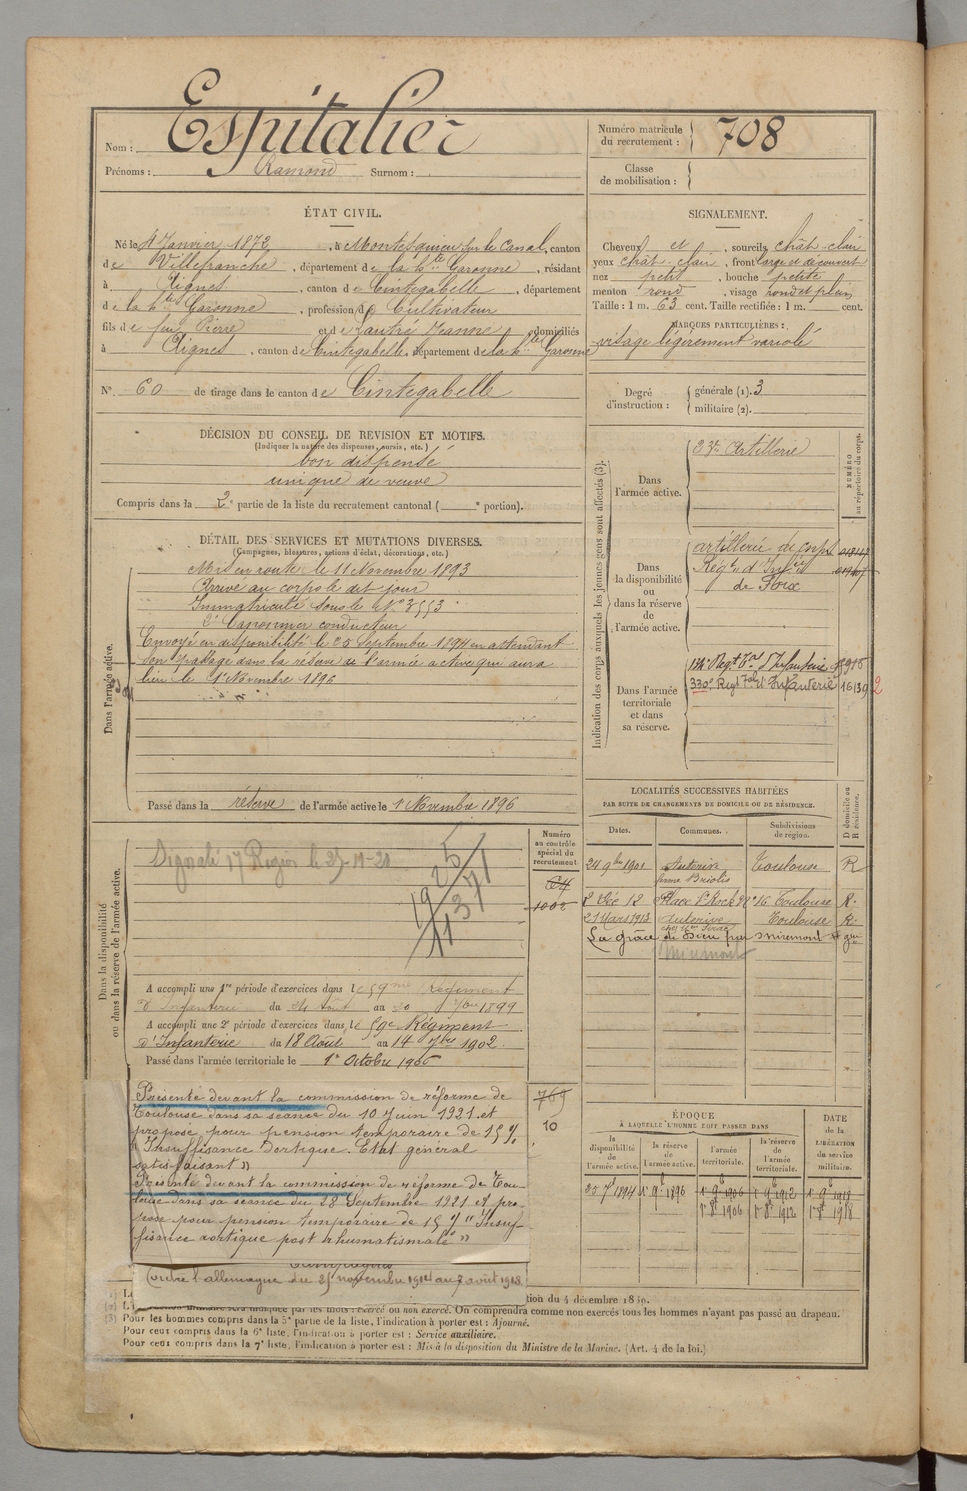 Nom : Espitalier
Prénoms : Ramond Surnom :
Numéro matricule du recrutement : 708
Classe de mobilisation :
ÉTAT CIVIL.
Né le 4 Janvier 1872, à Montesquieu sur le Canal, canton
de Villefranche, département de la hte Garonne, résidant
à Aignes, canton de Cintegabelle, département
de la hte Garonne, profession de Cultivateur
fils de feu Pierre et de Lautré Jeanne domiciliés
à Aignes, canton de Cintegabelle, département de la hte Garonne
N° 60 de tirage dans le canton de Cintegabelle
SIGNALEMENT.
Cheveux et , sourcils chât-clair
yeux chât-clair, front large et découvert
nez petit, bouche petite
menton rond, visage rond et plein
Taille : 1 m. 63 cent. Taille rectifiée : 1 m. cent.
MARQUES PARTICULIÈRES :
visage légèrement variolé
Degré d'instruction : générale (1). 3
militaire (2).
DÉCISION DU CONSEIL DE REVISION ET MOTIFS.
(Indiquer la nature des dispenses, sursis, etc.)
bon dispensé
unique de veuve
Compris dans la 2e partie de la liste du recrutement cantonal ( e portion).
DÉTAIL DES SERVICES ET MUTATIONS DIVERSES.
(Campagnes, blessures, actions d'éclat, décorations, etc.)
Dans l'armée active.
Mis en route le 11 Novembre 1893
Arrivé au corps le dit jour
Immatriculé sous le N° 3553
2e Canonnier conducteur
Envoyé en disponibilité le 25 Septembre 1894 en attendant
son passage dans la réserve de l'armée active qui aura
lieu le 1er Novembre 1896
Passé dans la réserve de l'armée active le 1er Novembre 1896
Indication des corps auxquels les jeunes gens sont affectés (3).
NUMÉRO au répertoire du corps.
Dans l'armée active.
Artillerie
Dans la disponibilité ou dans la réserve de l'armée active.
artillerie de corps
Régt d'Infie
de Foix
Dans l'armée territoriale et dans sa réserve.
134e Regt Tal d'Infanterie
330e Regt Tal d'Infanterie 16139 2
LOCALITÉS SUCCESSIVES HABITÉES
PAR SUITE DE CHANGEMENTS DE DOMICILE OU DE RÉSIDENCE.
Dates. Communes. Subdivisions de région. D domicile ou R résidence.
24 9bre 1901 Auterive Toulouse R
ferme Briolis
2 Déc 12 Place St Roch Toulouse R.
21 Mars 1913 Auterive Toulouse R.
La grâce de Dieu par Miremont
Miremont
Dans la disponibilité ou dans la réserve de l'armée active.
Numéro au contrôle spécial du recrutement
1002
Signalé 17 Région le
A accompli une 1re période d'exercices dans le 59me Régiment
d'Infanterie du au 7bre 1899
A accompli une 2e période d'exercices dans le 59e Régiment
d'Infanterie du 18 Août au 14 7bre 1902.
Passé dans l'armée territoriale le 1er Octobre 1906
Présenté devant la commission de réforme de
Toulouse dans sa séance du 10 Juin 1921 et
proposé pour pension temporaire de 15 %
"Insuffisance aortique. Etat général
satisfaisant"
Présenté devant la commission de réforme de Tou-
louse dans sa séance du 28 Septembre 1921 et pro-
posé pour pension temporaire de 15 % "Insuf-
fisance aortique post rhumatismale"
769
10
Campagnes
Contre l'allemagne du 25 novembre 1914 au 7 août 1918
ÉPOQUE
À LAQUELLE L'HOMME DOIT PASSER DANS
la disponibilité de l'armée active. la réserve de l'armée active. l'armée territoriale. la réserve de l'armée territoriale. DATE de la LIBÉRATION du service militaire.
25 7e 1894 1er 9e 1896 1er 9e 1906 1er 9e 1912 1er 9e 1918
1er 8e 1906 1er 8e 1912 1er 8e 1918
exercé ou non exercé. On comprendra comme non exercés tous les hommes n'ayant pas passé au drapeau.
(3) Pour les hommes compris dans la 5e partie de la liste, l'indication à porter est : Ajourné.
Pour ceux compris dans la 6e liste, l'indication à porter est : Service auxiliaire.
Pour ceux compris dans la 7e liste, l'indication à porter est : Mis à la disposition du Ministre de la Marine. (Art. 4 de la loi.)